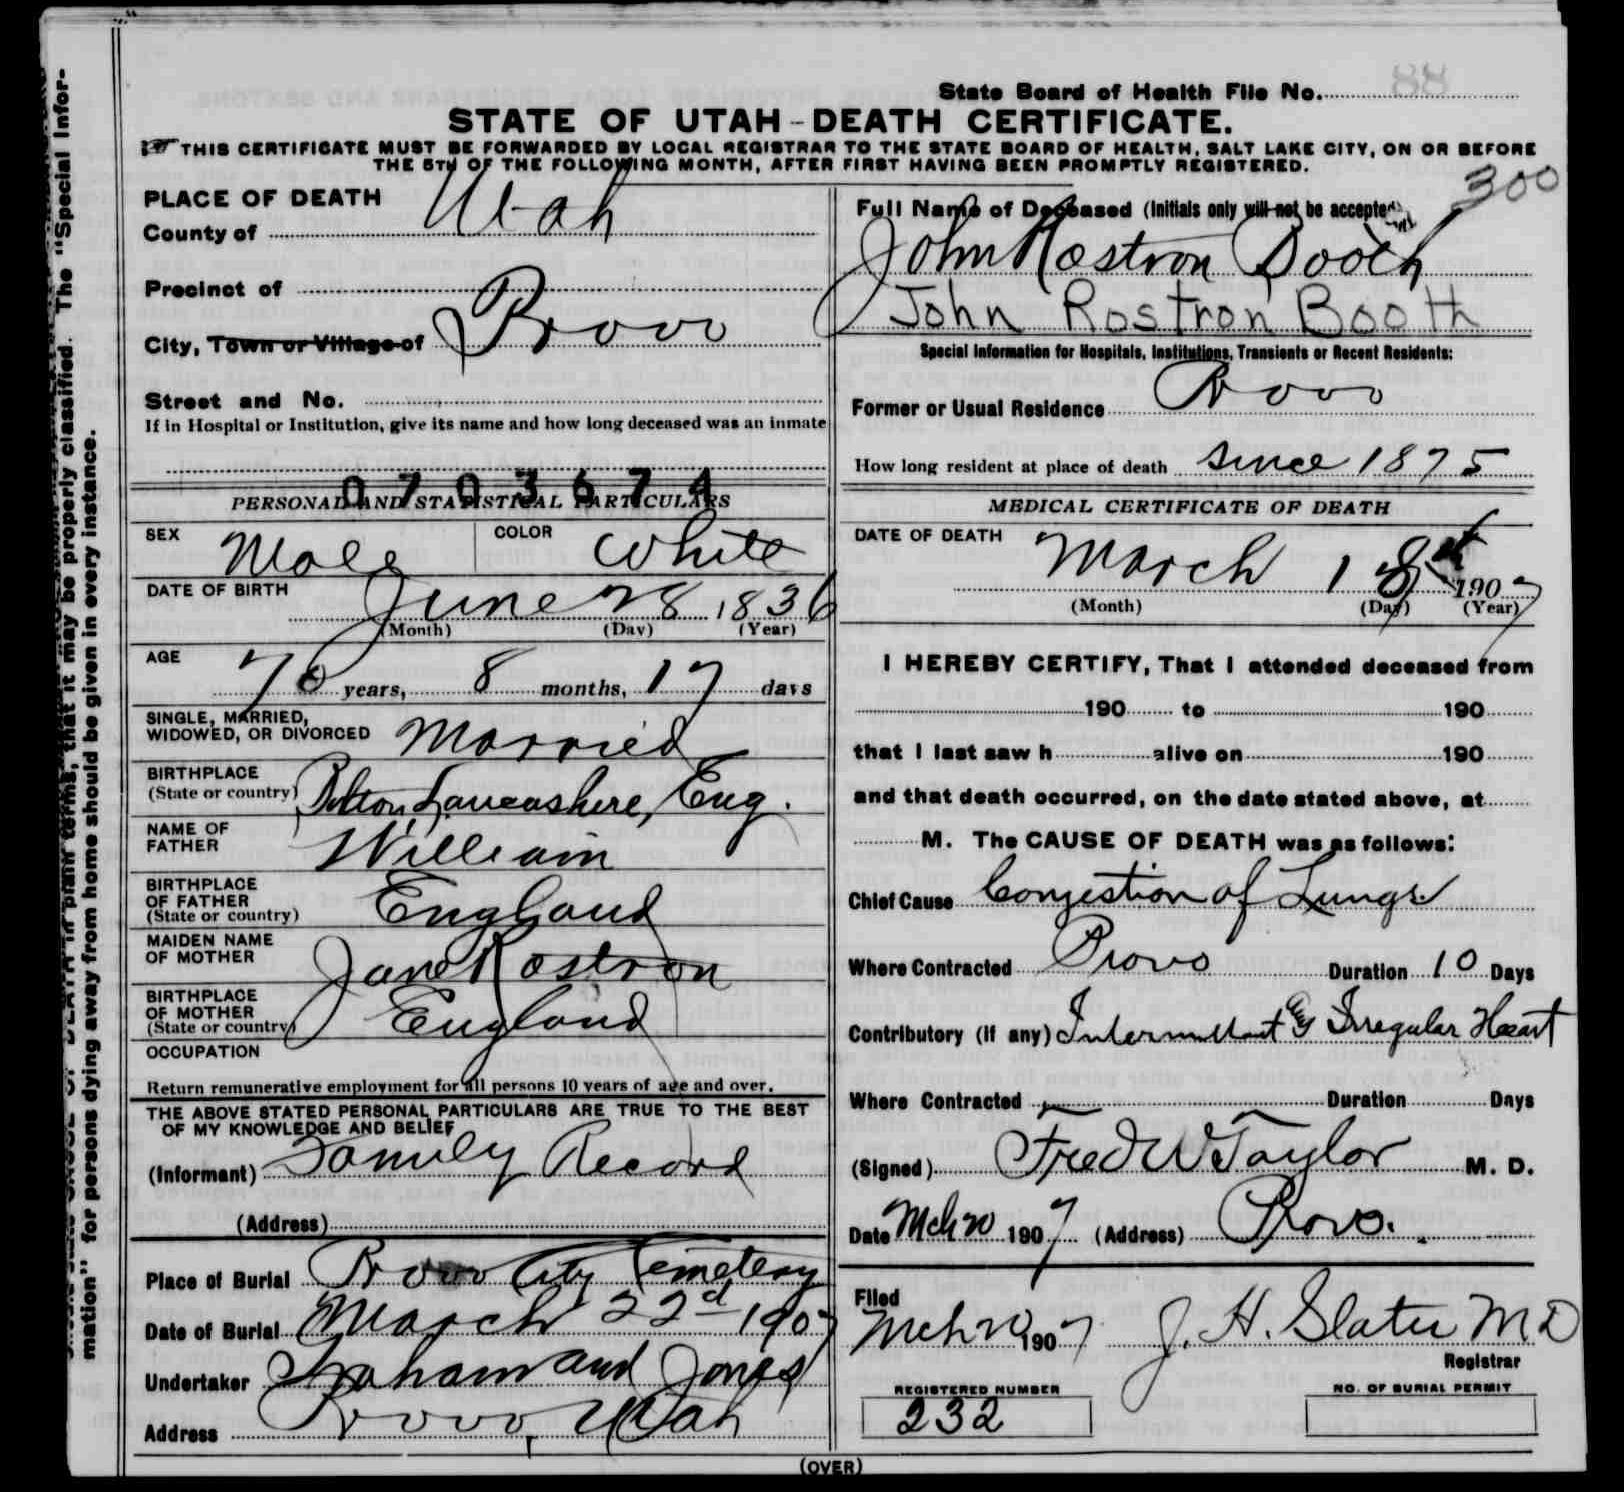 "mation" for persons dying away from home should be given in every instance.
that it may be properly classified. The "Special Infor-
State Board of Health File No. 88
STATE OF UTAH-DEATH CERTIFICATE.
THIS CERTIFICATE MUST BE FORWARDED BY LOCAL REGISTRAR TO THE STATE BOARD OF HEALTH, SALT LAKE CITY, ON OR BEFORE
THE 5TH OF THE FOLLOWING MONTH, AFTER FIRST HAVING BEEN PROMPTLY REGISTERED.
300
PLACE OF DEATH
County of Utah
Precinct of
City, Town or Village of Provo
Street and No.
If in Hospital or Institution, give its name and how long deceased was an inmate
0703674
PERSONAL AND STATISTICAL PARTICULARS
SEX Male COLOR White
DATE OF BIRTH June 28 1836
(Month) (Day) (Year)
AGE 70 years, 8 months, 17 days
SINGLE, MARRIED,
WIDOWED, OR DIVORCED Married
BIRTHPLACE
(State or country) Bolton, Lancashire, Eng.
NAME OF
FATHER William
BIRTHPLACE
OF FATHER
(State or country) England
MAIDEN NAME
OF MOTHER Jane Rostron
BIRTHPLACE
OF MOTHER
(State or country) England
OCCUPATION
Return remunerative employment for all persons 10 years of age and over.
THE ABOVE STATED PERSONAL PARTICULARS ARE TRUE TO THE BEST
OF MY KNOWLEDGE AND BELIEF
(Informant) Family Record
(Address)
Place of Burial Provo City Cemetery
Date of Burial March 22d 1907
Undertaker Graham and Jones
Address Provo, Utah
Full Name of Deceased (Initials only will not be accepted)
John Rostron Booth
John Rostron Booth
Special Information for Hospitals, Institutions, Transients or Recent Residents:
Former or Usual Residence Provo
How long resident at place of death since 1875
MEDICAL CERTIFICATE OF DEATH
DATE OF DEATH March 18 1907
(Month) (Day) (Year)
I HEREBY CERTIFY, That I attended deceased from
190 to 190
that I last saw h alive on 190
and that death occurred, on the date stated above, at
M. The CAUSE OF DEATH was as follows:
Chief Cause Congestion of Lungs
Where Contracted Provo Duration 10 Days
Contributory (if any) Intermittent & Irregular Heart
Where Contracted Duration Days
(Signed) Fred W Taylor M. D.
Date Mch 20 1907 (Address) Provo.
Filed
Mch 20 1907 J. H. Slater MD
Registrar
REGISTERED NUMBER NO. OF BURIAL PERMIT
232
(OVER)